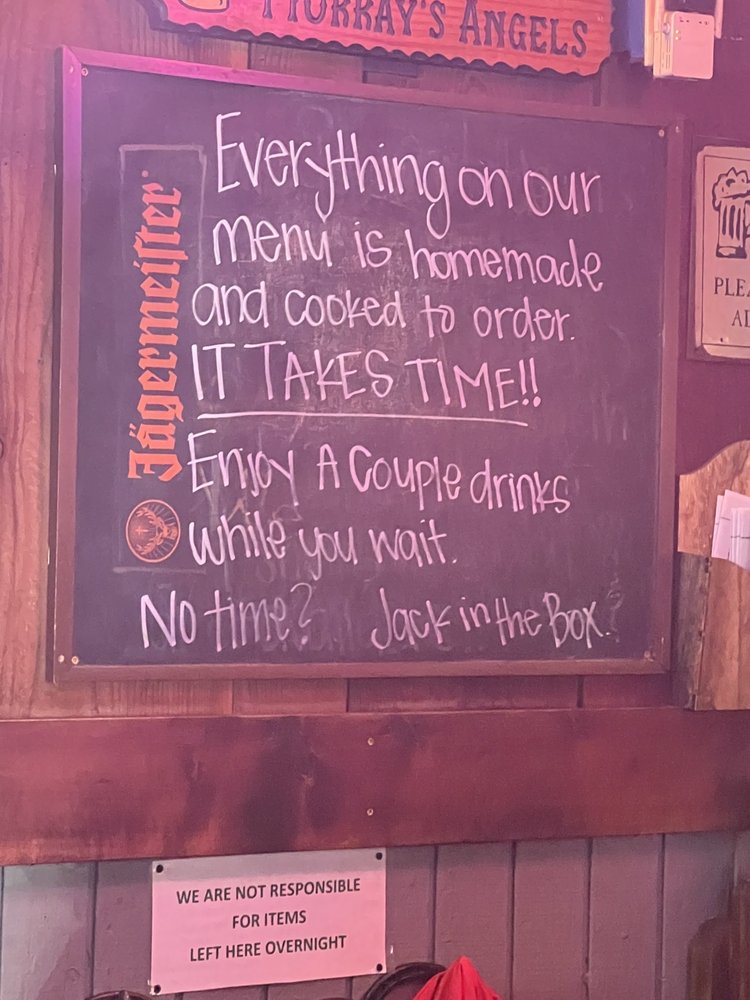 MURRAY'S ANGELS
Everything on our
menu is homemade
and cooked to order.
IT TAKES TIME!!
Enjoy A Couple drinks
while you wait.
No time? Jack in the Box.
Jägermeister
WE ARE NOT RESPONSIBLE
FOR ITEMS
LEFT HERE OVERNIGHT